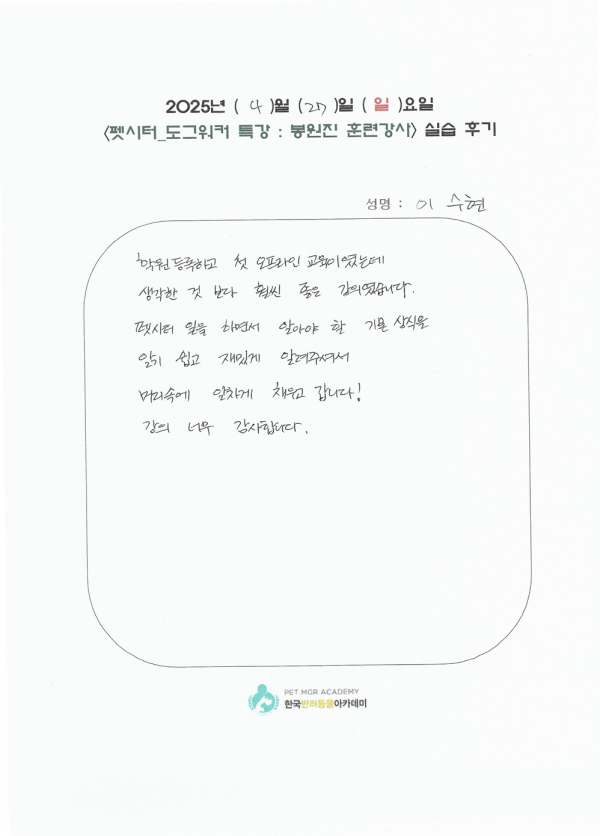 2025년 ( 4 )월 (27 )일 ( 일 )요일
<펫시터_도그워커 특강 : 봉원진 훈련강사> 실습 후기
성명 : 이 수현
학원 등록하고 첫 오프라인 교육이였는데
생각한 것 보다 훨씬 좋은 강의였습니다.
펫시터 일을 하면서 알아야 할 기본 상식을
알기 쉽고 재밌게 알려주셔서
머리속에 알차게 채우고 갑니다!
강의 너무 감사합니다.
PET MGR ACADEMY
한국반려동물아카데미